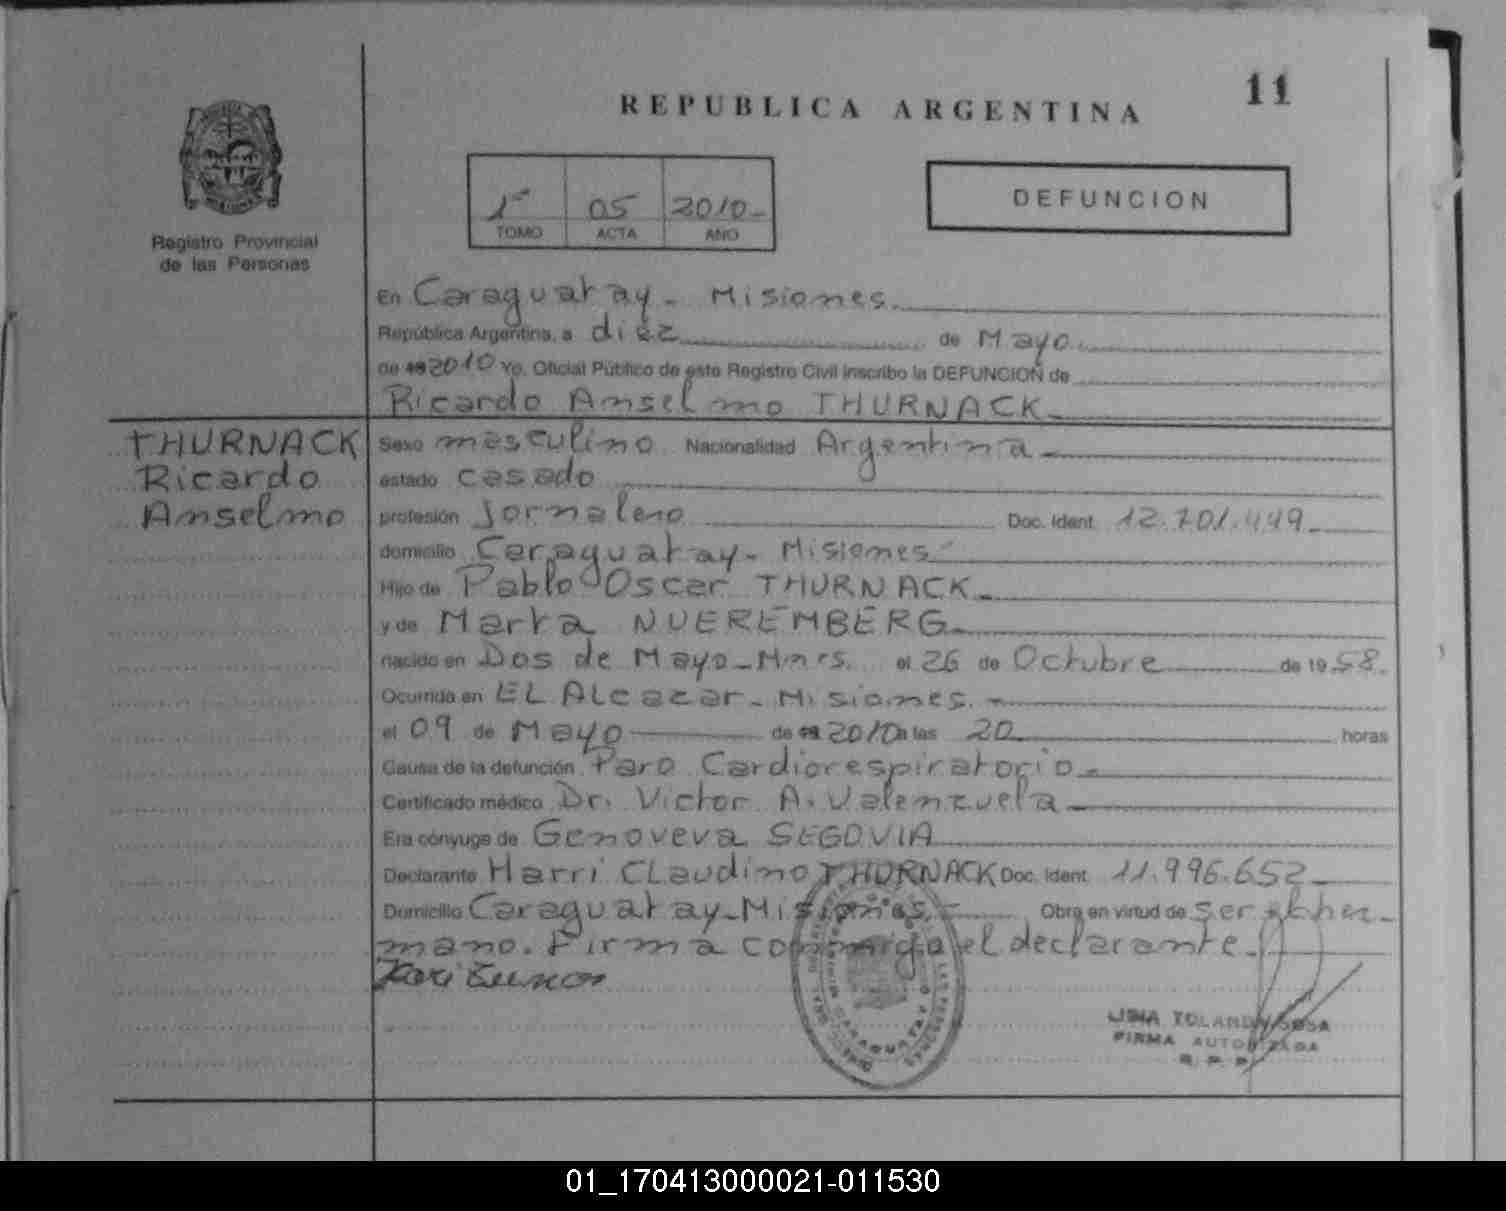 11
REPUBLICA ARGENTINA
1º 05 2010-
TOMO ACTA AÑO
DEFUNCION
Registro Provincial
de las Personas
En Caraguatay - Misiones.
República Argentina, a diez de Mayo
de 19 2010 Yo, Oficial Público de este Registro Civil inscribo la DEFUNCION de
Ricardo Anselmo THURNACK-
THURNACK
Ricardo
Anselmo
Sexo masculino Nacionalidad Argentina-
estado casado
profesión Jornalero Doc. Ident. 12.701.449-
domicilio Caraguatay - Misiones-
Hijo de Pablo Oscar THURNACK-
y de Marta NUEREMBERG-
nacido en Dos de Mayo - Mnes. el 26 de Octubre de 1958.
Ocurrida en EL Alcazar - Misiones.-
el 09 de Mayo de 19 2010 a las 20 horas
Causa de la defunción Paro Cardiorespiratorio-
Certificado médico Dr. Victor A. Valenzuela-
Era cónyuge de Genoveva SEGOVIA
Declarante Harri CLaudino THURNACK Doc. Ident. 11.996.652-
Domicilio Caraguatay - Misiones.- Obra en virtud de ser el her-
mano. Firma conmigo el declarante.-
LIBIA YOLANDA SOSA
FIRMA AUTORIZADA
R. P. P.
01_170413000021-011530